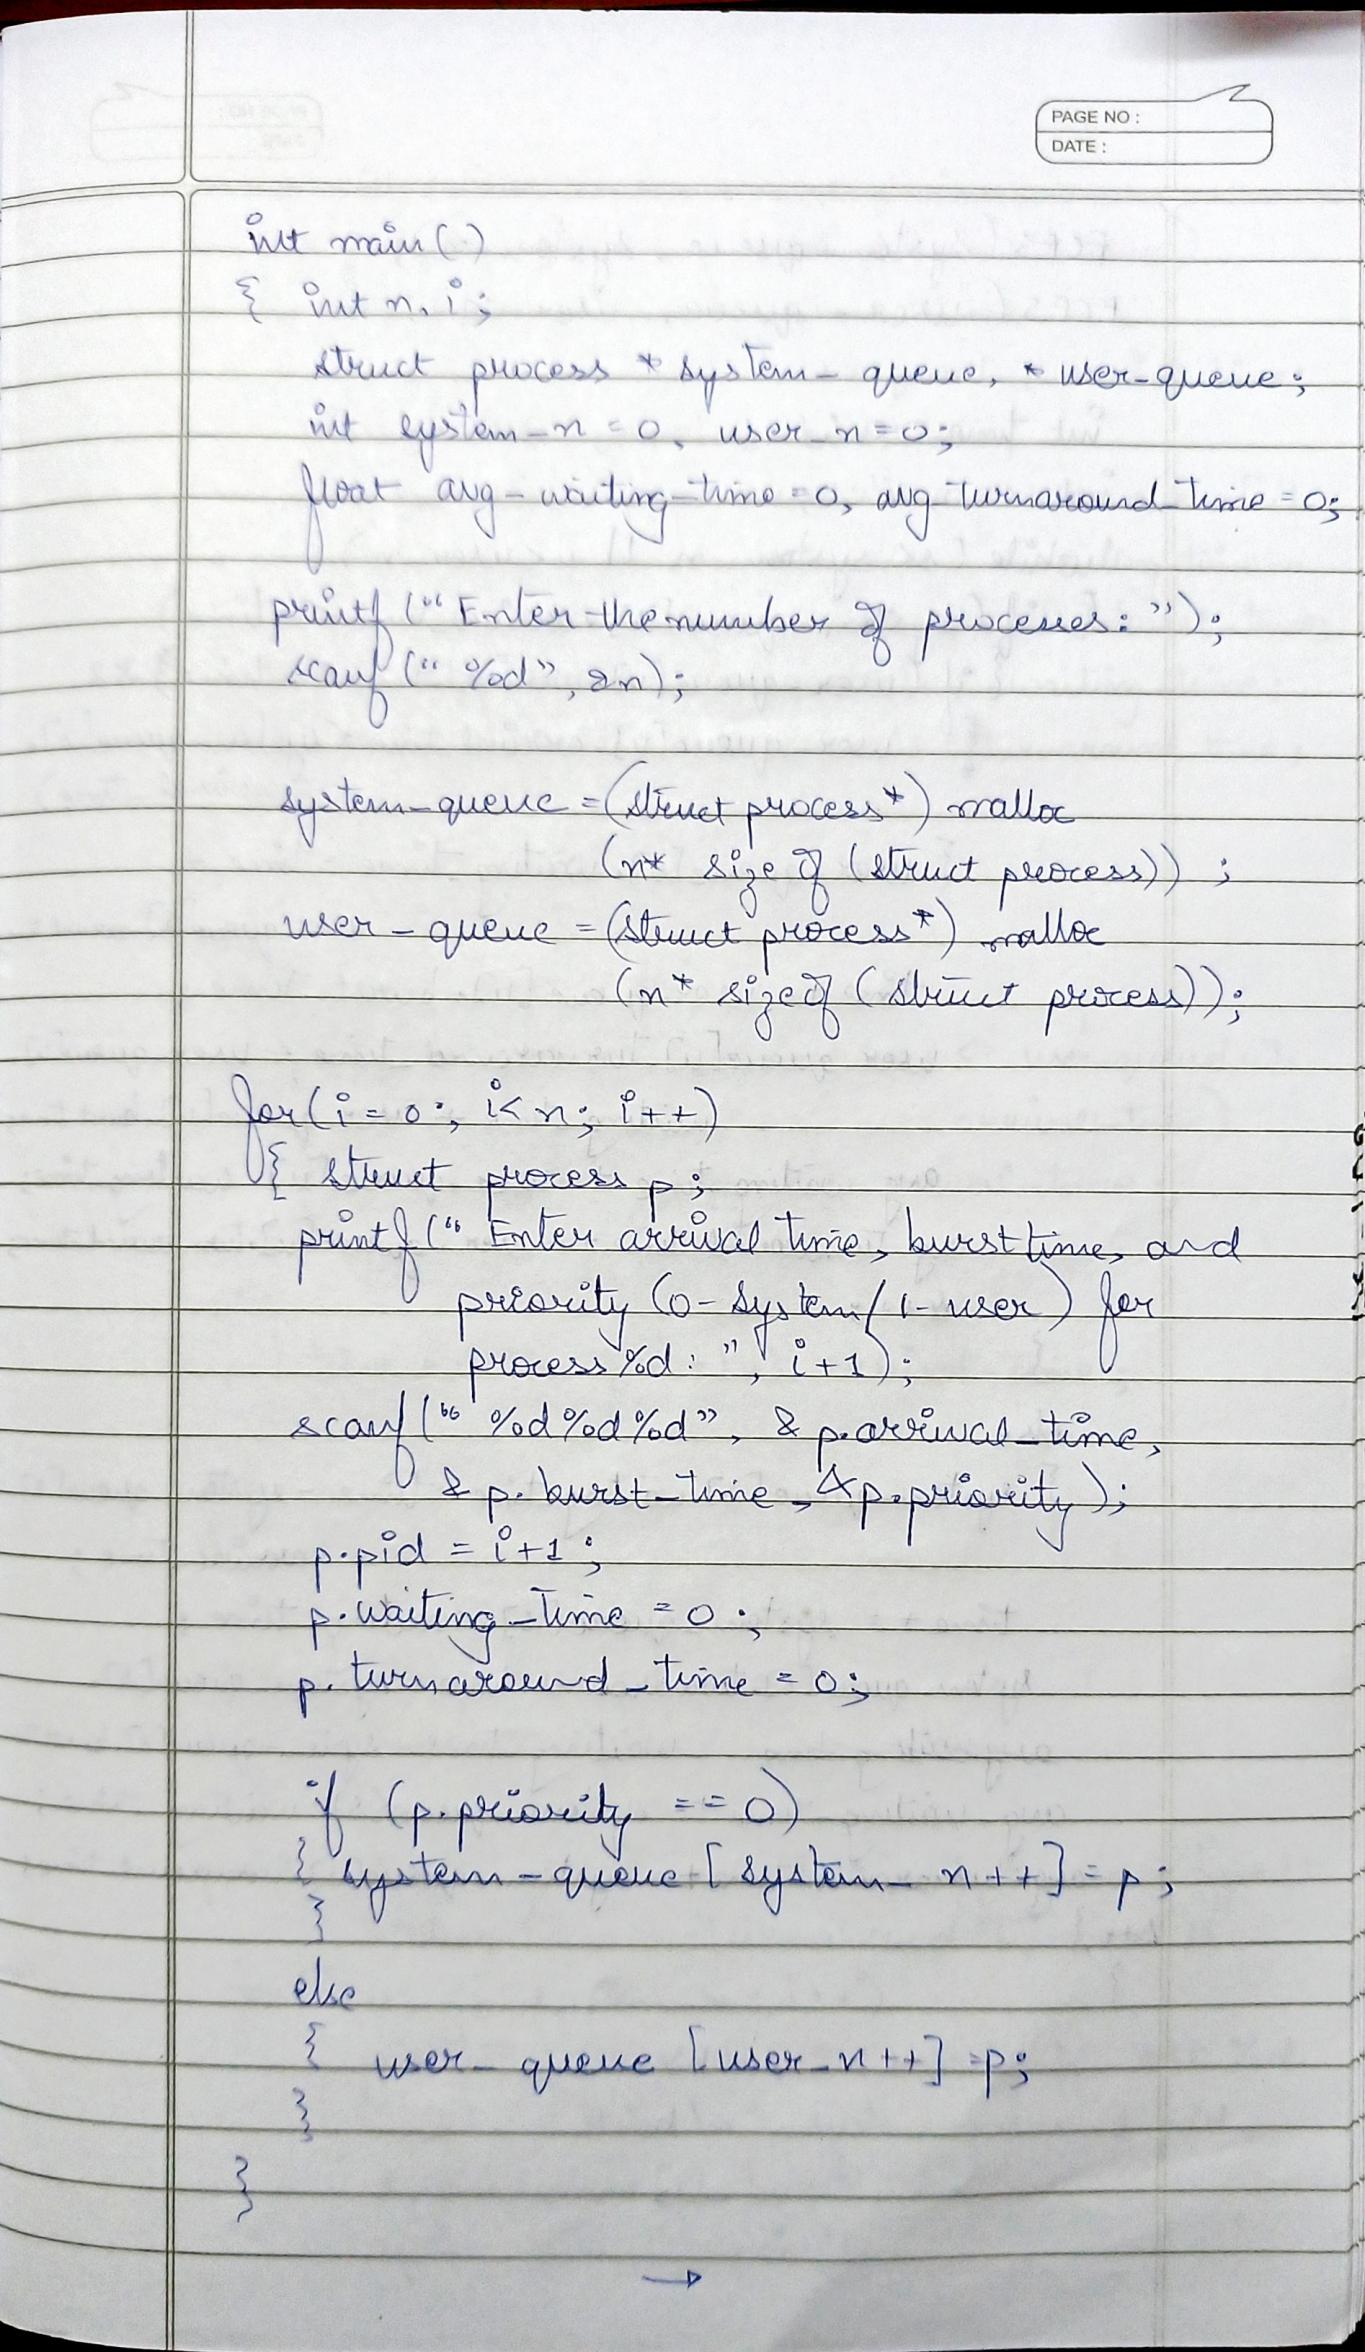 PAGE NO :
DATE :
int main()
{ int n, i;
struct process * system_queue, * user_queue;
int system_n = 0, user_n = 0;
float avg_waiting_time = 0, avg_turnaround_time = 0;
printf (" Enter the number of processes: ");
scanf (" %d", &n);
system_queue = (struct process*) malloc
(n* size of (struct process)) ;
user_queue = (struct process*) malloc
(n* sizeof (struct process));
for(i = 0; i< n; i++)
{ struct process p;
printf (" Enter arrival time, burst time, and
priority (0- system/ 1- user) for
process %d: ", i+1);
scanf (" %d %d %d", & p.arrival_time,
& p. burst_time, &p.priority);
p.pid = i+1;
p.waiting_time = 0;
p. turnaround_time = 0;
if (p.priority == 0)
{ system_queue [ system_n++] = p;
}
else
{ user_queue [user_n++] =p;
}
}
→